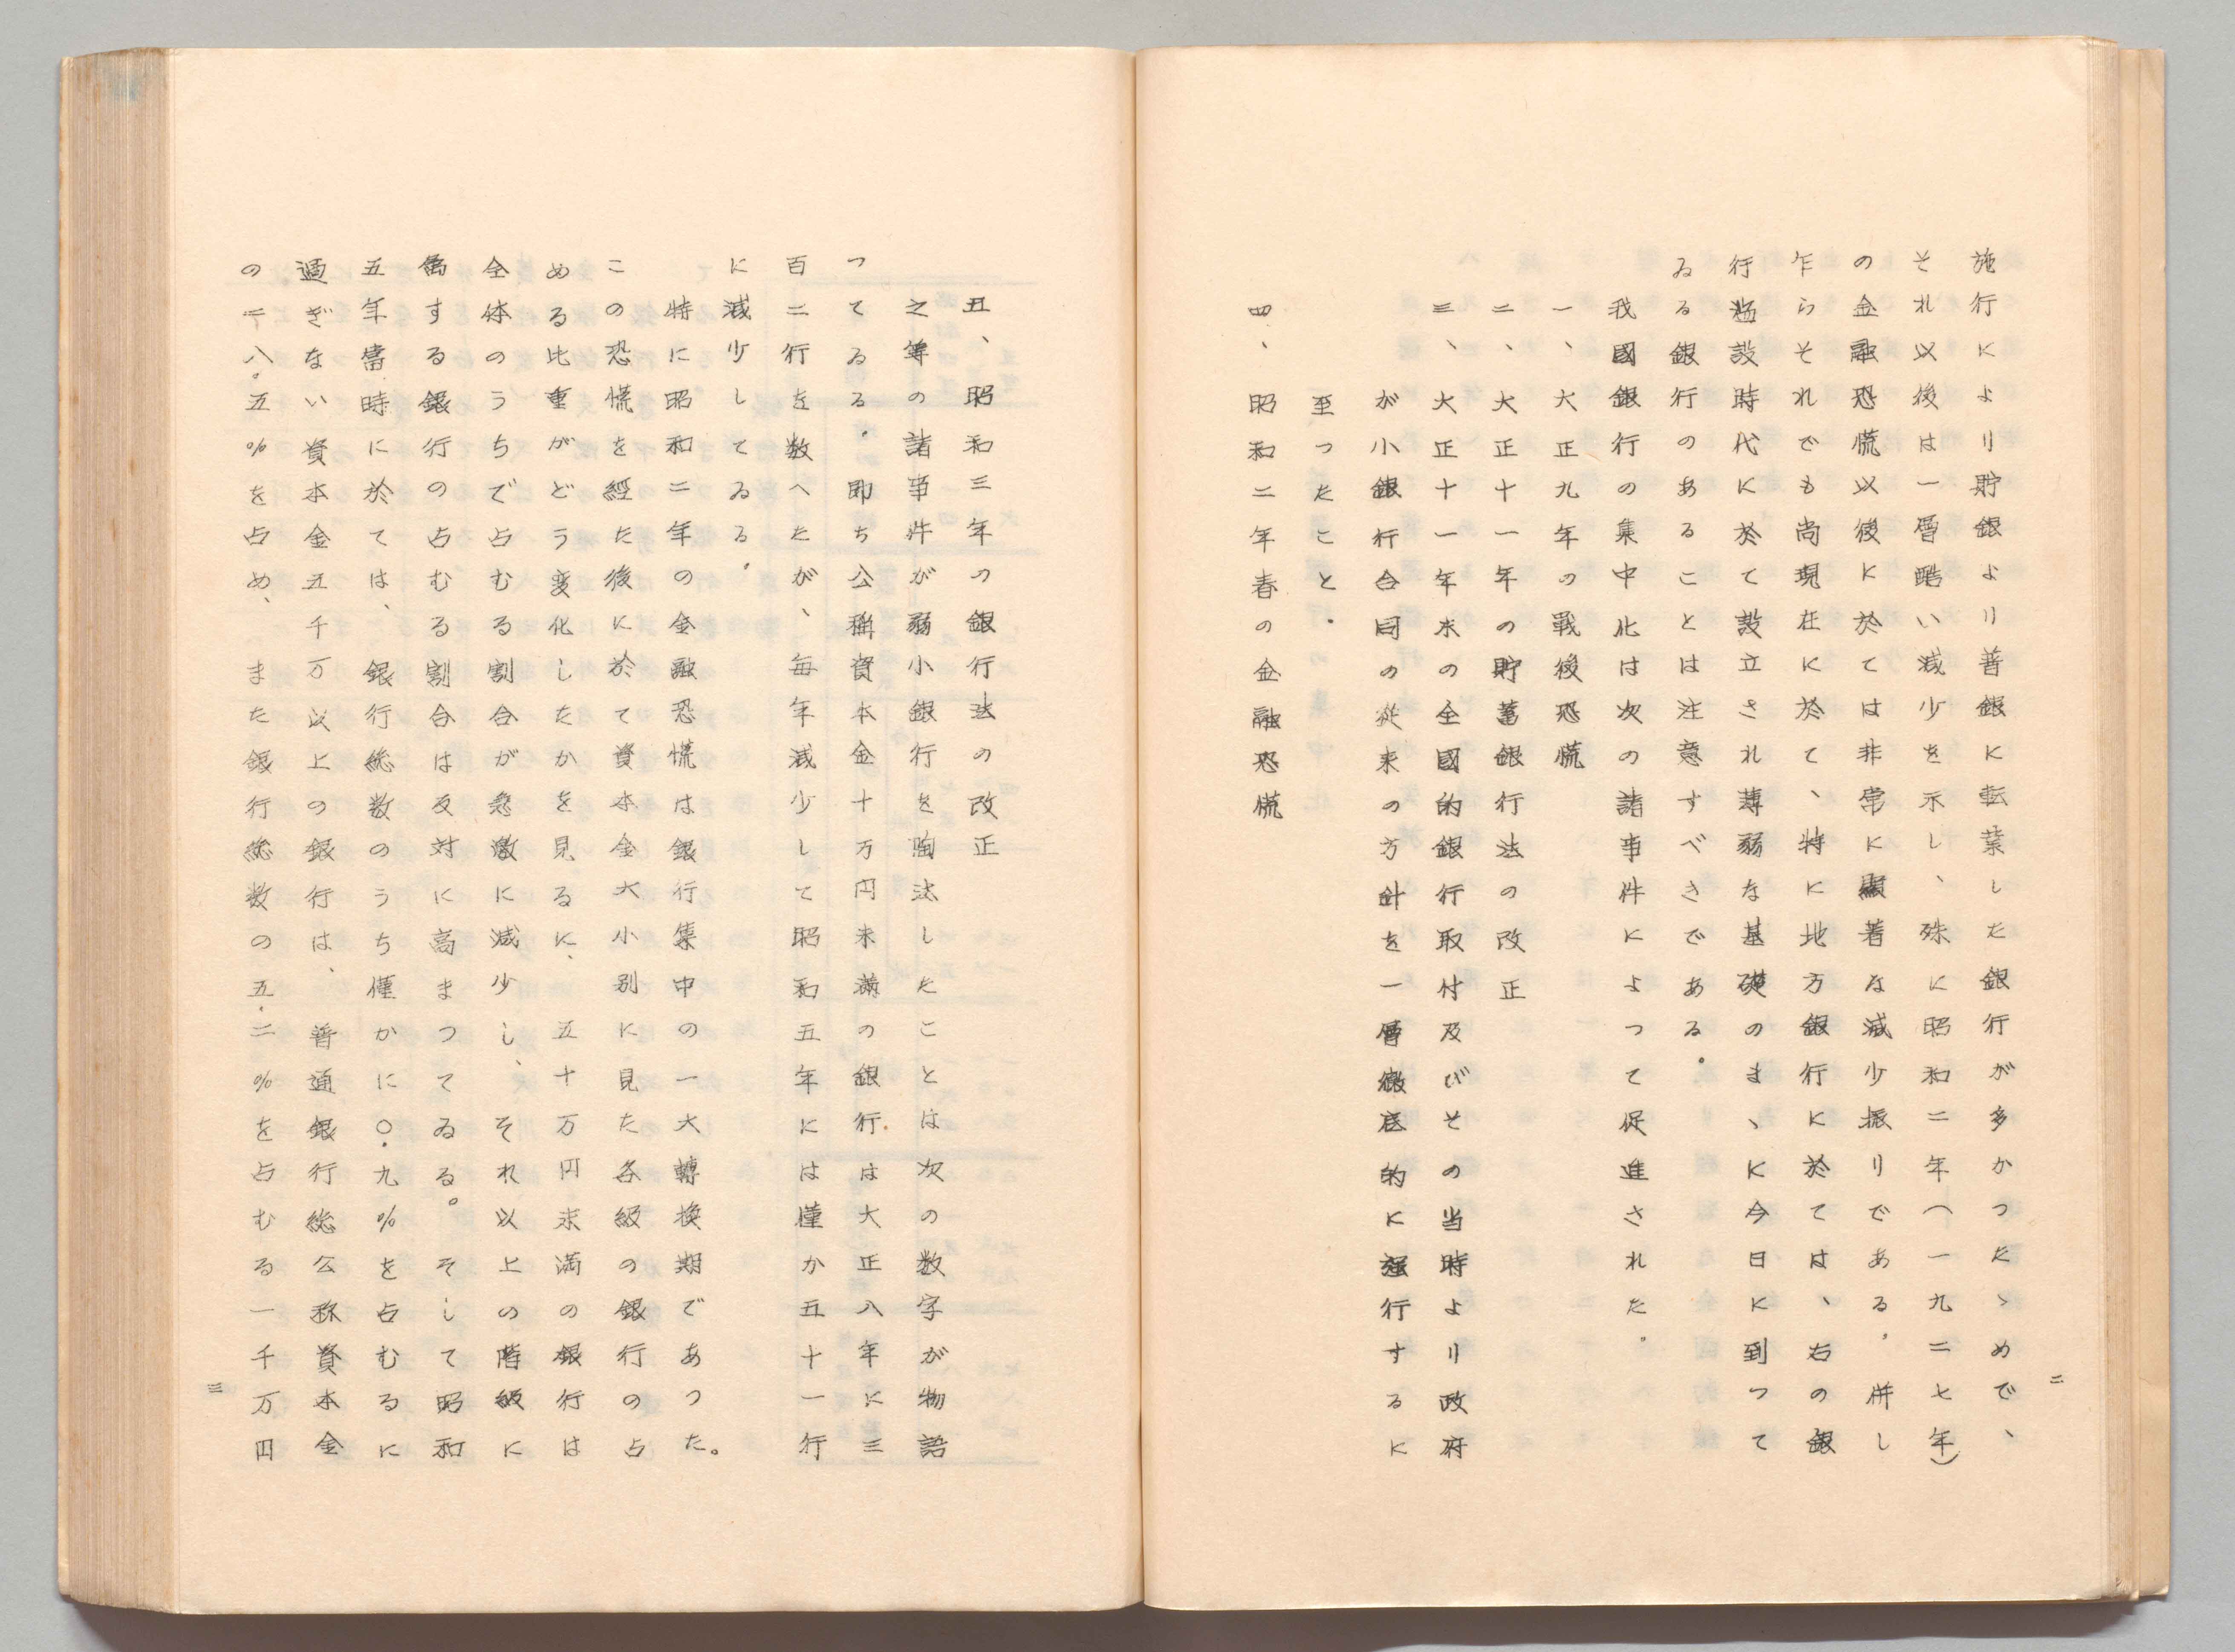 施行により貯銀より普銀に転業した銀行が多かつたゝめで、
それ以後は一層酷い減少を示し、殊に昭和二年(一九二七年)
の金融恐慌以後に於ては非常に顕著な減少振りである。併し
乍らそれでも尚現在に於て、特に地方銀行に於ては、右の銀
行濫設時代に於て設立され薄弱な基礎のまゝに今日に到つて
ゐる銀行のあることは注意すべきである。
我國銀行の集中化は次の諸事件によつて促進された。
一、大正九年の戦後恐慌
二、大正十一年の貯蓄銀行法の改正
三、大正十一年末の全國的銀行取付及びその当時より政府
が小銀行合同の従来の方針を一層徹底的に強行するに
至つたこと。
四、昭和二年春の金融恐慌
二
五、昭和三年の銀行法の改正
之等の諸事件が弱小銀行を陶汰したことは次の数字が物語
つてゐる。即ち公稱資本金十万円未満の銀行は大正八年に三
百二行を数へたが、毎年減少して昭和五年には僅か五十一行
に減少してゐる。
特に昭和二年の金融恐慌は銀行集中の一大轉換期であつた。
この恐慌を経た後に於て資本金大小別に見た各級の銀行の占
める比重がどう変化したかを見るに、五十万円未満の銀行は
全体のうちで占むる割合が急激に減少し、それ以上の階級に
属する銀行の占むる割合は反対に高まつてゐる。そして昭和
五年當時に於ては、銀行総数のうち僅かに〇.九%を占むるに
過ぎない資本金五千万以上の銀行は、普通銀行総公称資本金
の二八。五%を占め、また銀行総数の五.二%を占むる一千万円
三